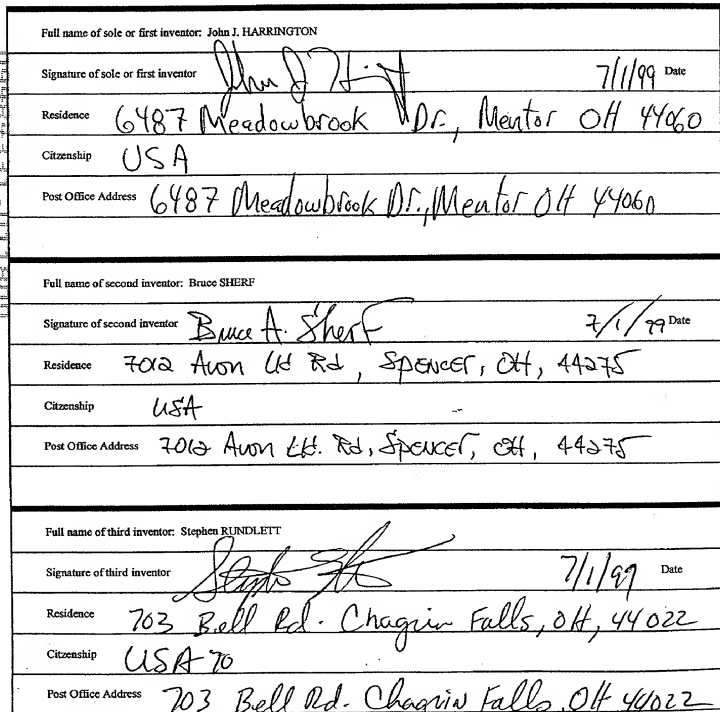 Full name of sole or first inventor: John J. HARRINGTON
Signature of sole or first inventor 7/1/99 Date
Residence 6487 Meadowbrook Dr., Mentor OH 44060
Citzenship USA
Post Office Address 6487 Meadowbrook Dr., Mentor OH 44060
Full name of second inventor: Bruce SHERF
Signature of second inventor Bruce A. Sherf 7/1/99 Date
Residence 7012 Avon Rd, SPENCER, OH, 44275
Citzenship USA
Post Office Address 7012 Avon Rd, SPENCER, OH, 44275
Full name of third inventor: Stephen RUNDLETT
Signature of third inventor 7/1/99 Date
Residence 703 Bell Rd. Chagrin Falls, OH, 44022
Citzenship USA
Post Office Address 703 Bell Rd. Chagrin Falls, OH 44022